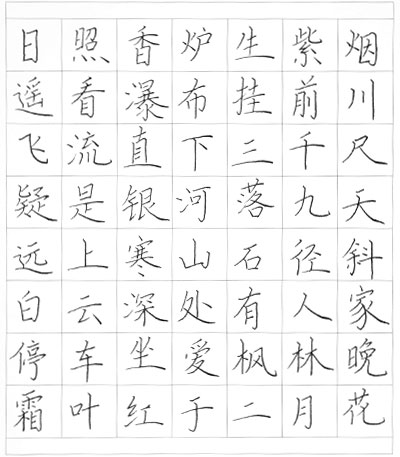 日照香炉生紫烟
遥看瀑布挂前川
飞流直下三千尺
疑是银河落九天
远上寒山石径斜
白云深处有人家
停车坐爱枫林晚
霜叶红于二月花